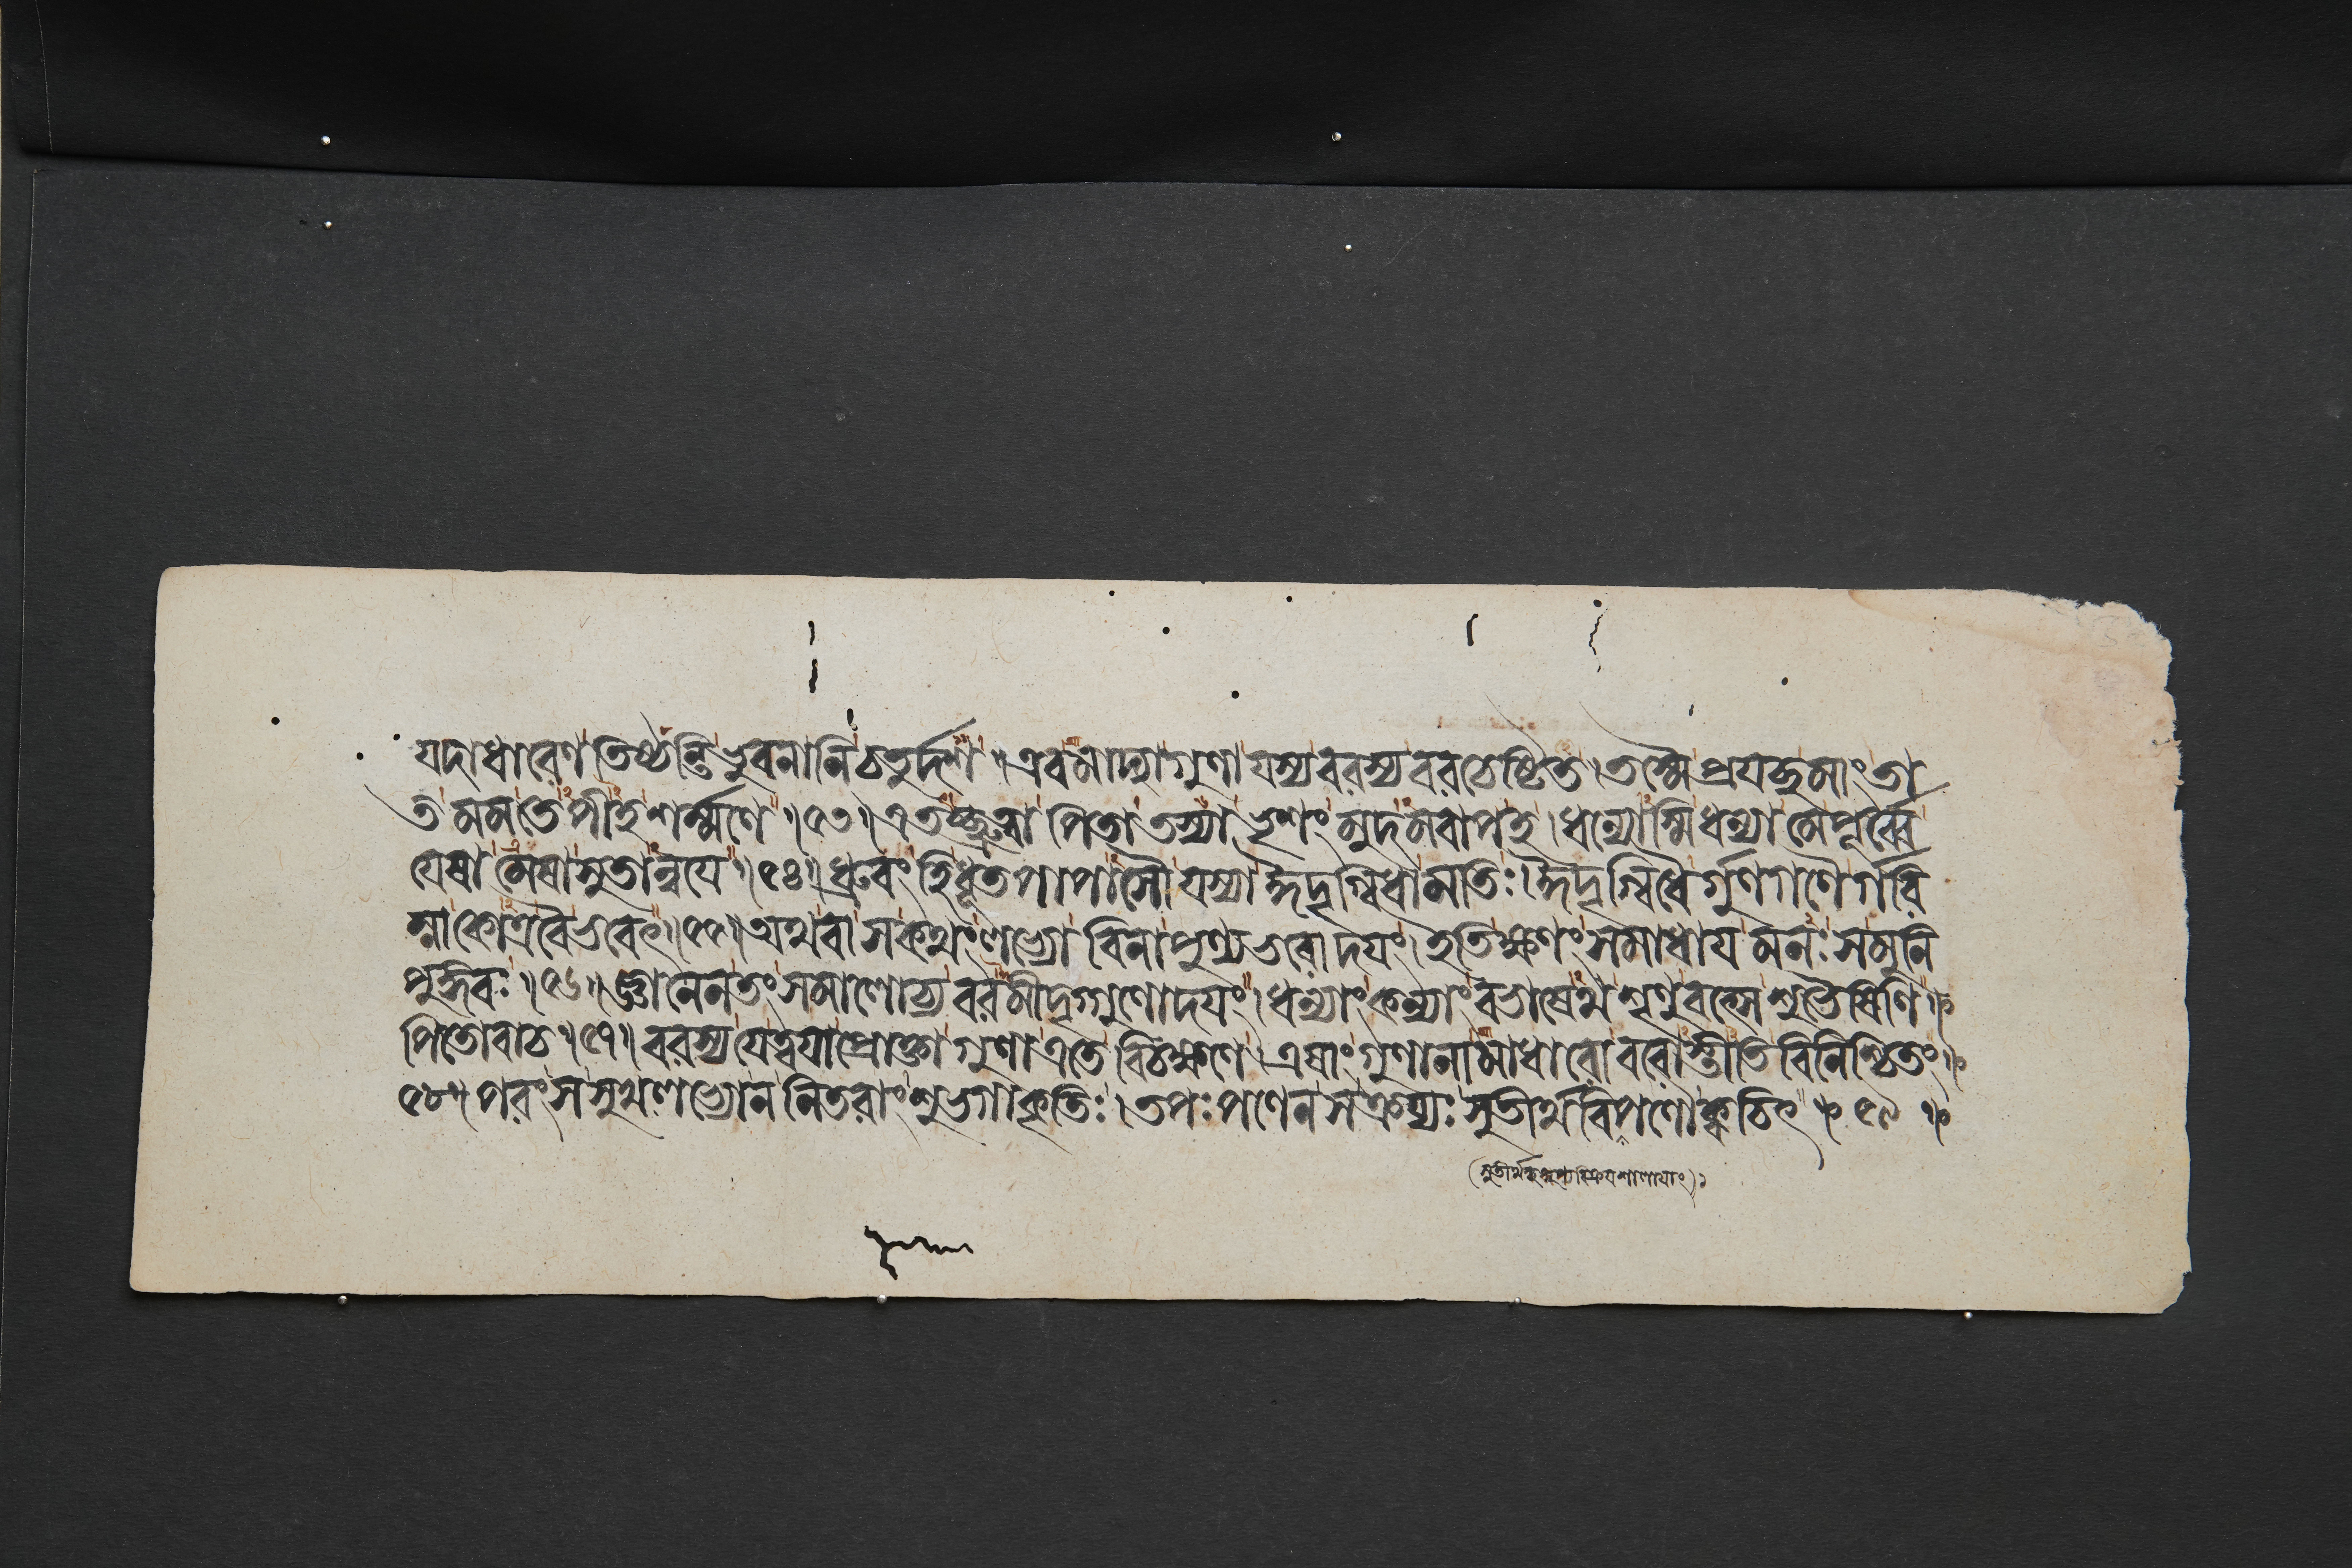 যদাধারেণ তিষ্ঠন্তি ভুবনানি চতুর্দশ । এবমাদ্যাগুণা যস্য বরস্য বরচেষ্টিত । তস্মৈ প্রযচ্ছ মাং তা
ত মম তে পীহ শর্ম্মণে ॥ ৫৩ ॥ এতচ্ছ্রুত্বা পিতা তস্যা ভৃশং মুদমবাপ হ । ধন্যোস্মি ধন্যা মে পূর্ব্বে
যেষামেষা সুতান্বযে ॥ ৫৪ ॥ ধ্রুবং হি ধূতপাপাসৌ যস্যা ঈদৃগ্বিধা মতিঃ । ঈদৃগ্বিধৈর্গুণগণৈর্গরি
ম্নাকোত্রবৈ ভবেৎ ॥ ৫৫ ॥ অথবা স কথং লভ্যো বিনা পুণ্যভরোদযং । ইতি ক্ষণং সমাধায মনঃ স মুনি
পুঙ্গবঃ ॥ ৫৬ ॥ জ্ঞানেন তং সমালোচ্য বরমীদৃগ্গুণোদযং । ধন্যাং কন্যাং বভাষেথ শৃণু বৎসে শুভৈষিণি ॥
পিতোবাচ ॥ ৫৭ ॥ বরস্য যে ত্বযা প্রোক্তা গুণা এতে বিচক্ষণে । এষাং গুণানামাধারো বরোস্তীতি বিনিশ্চিতং ॥
৫৮ ॥ পরং স সুখলভ্যো ন নিতরাং শুভগাকৃতিঃ । তপঃ পণেন স ক্রয্যঃ সুতীর্থবিপণৌ ক্বচিৎ ॥ ৫৯ ॥